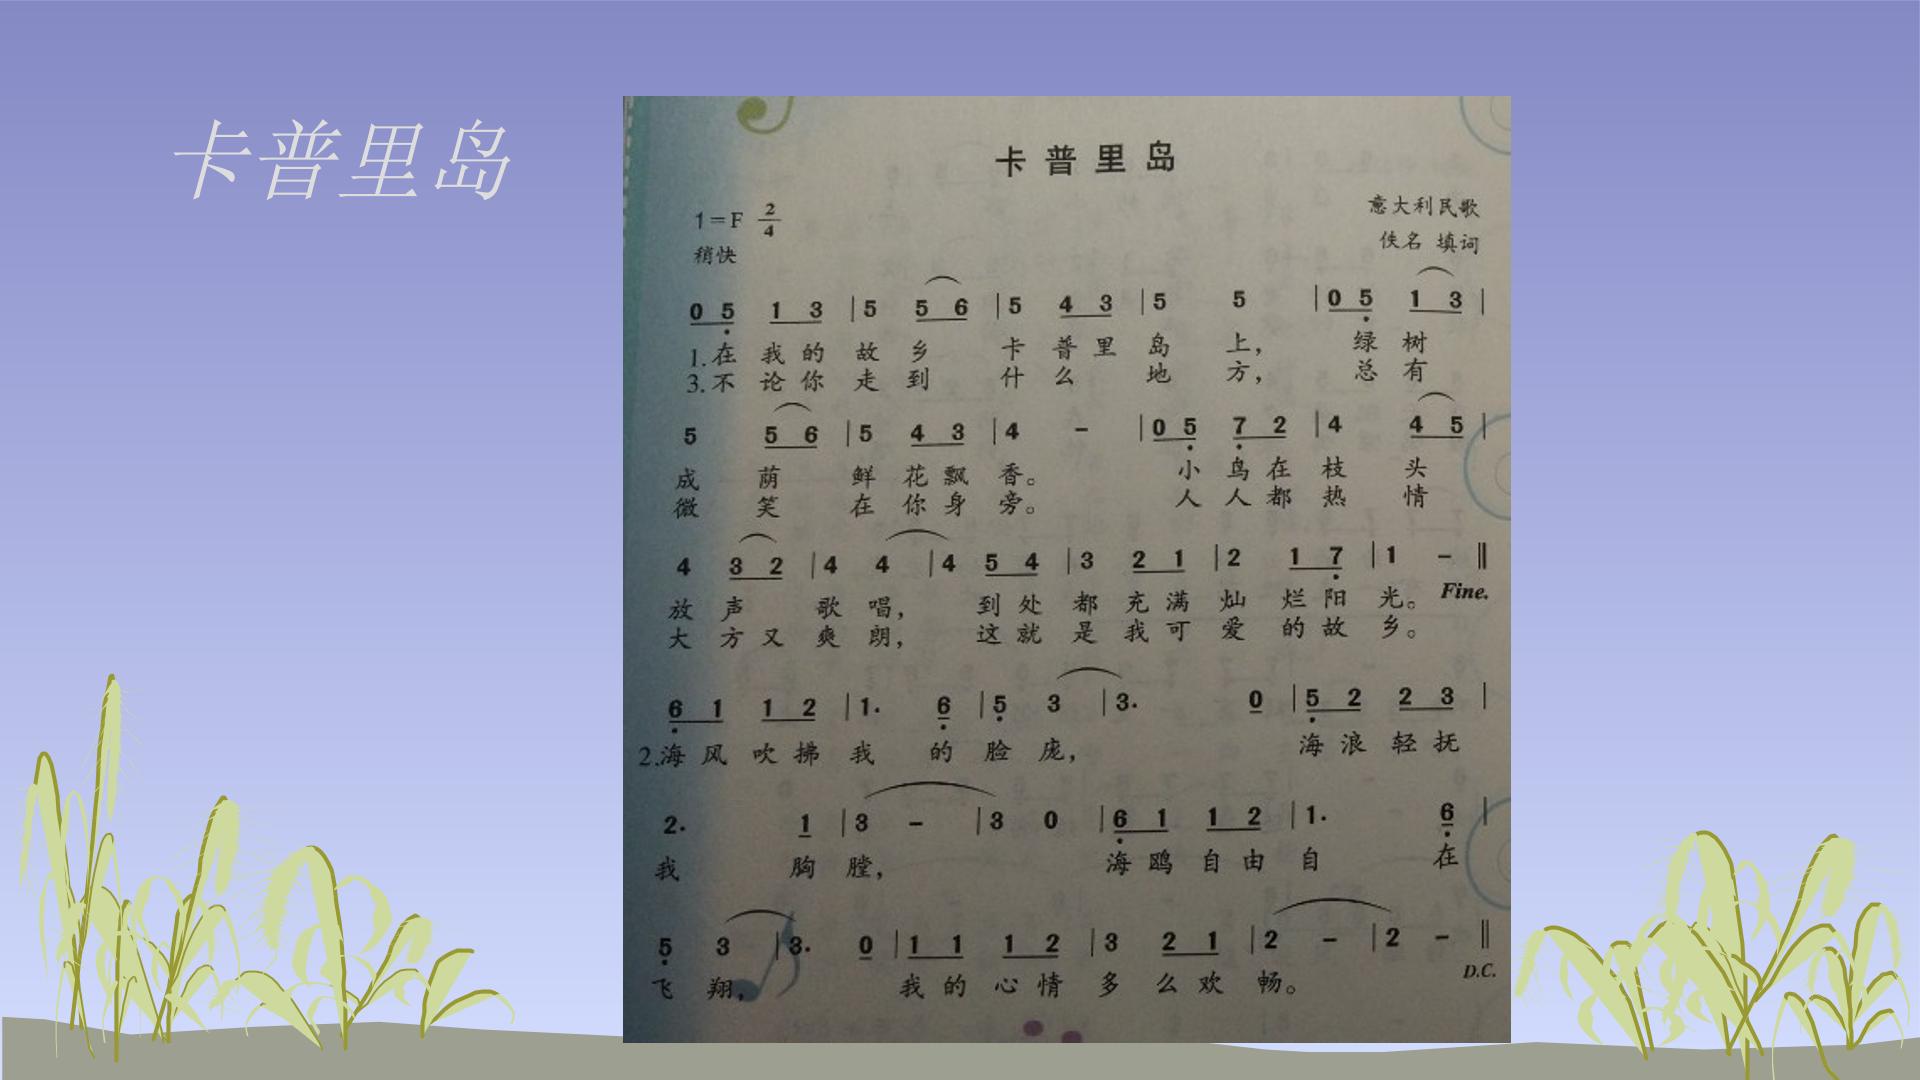 卡普里岛
卡普里岛
1=F 2/4
意大利民歌
稍快
佚名 填词
0 5 1 3 | 5 5 6 | 5 4 3 | 5 5 | 0 5 1 3 |
1.在 我 的 故 乡 卡 普 里 岛 上， 绿 树
3.不 论 你 走 到 什 么 地 方， 总 有
5 5 6 | 5 4 3 | 4 - | 0 5 7 2 | 4 4 5 |
成 荫 鲜 花 飘 香。 小 鸟 在 枝 头
微 笑 在 你 身 旁。 人 人 都 热 情
4 3 2 | 4 4 | 4 5 4 | 3 2 1 | 2 1 7 | 1 - ‖
放 声 歌 唱， 到 处 都 充 满 灿 烂 阳 光。 Fine.
大 方 又 爽 朗， 这 就 是 我 可 爱 的 故 乡。
6 1 1 2 | 1. 6 | 5 3 | 3. 0 | 5 2 2 3 |
2.海 风 吹 拂 我 的 脸 庞， 海 浪 轻 抚
2. 1 | 3 - | 3 0 | 6 1 1 2 | 1. 6 |
我 胸 膛， 海 鸥 自 由 自 在
5 3 | 3. 0 | 1 1 1 2 | 3 2 1 | 2 - | 2 - ‖
D.C.
飞 翔， 我 的 心 情 多 么 欢 畅。